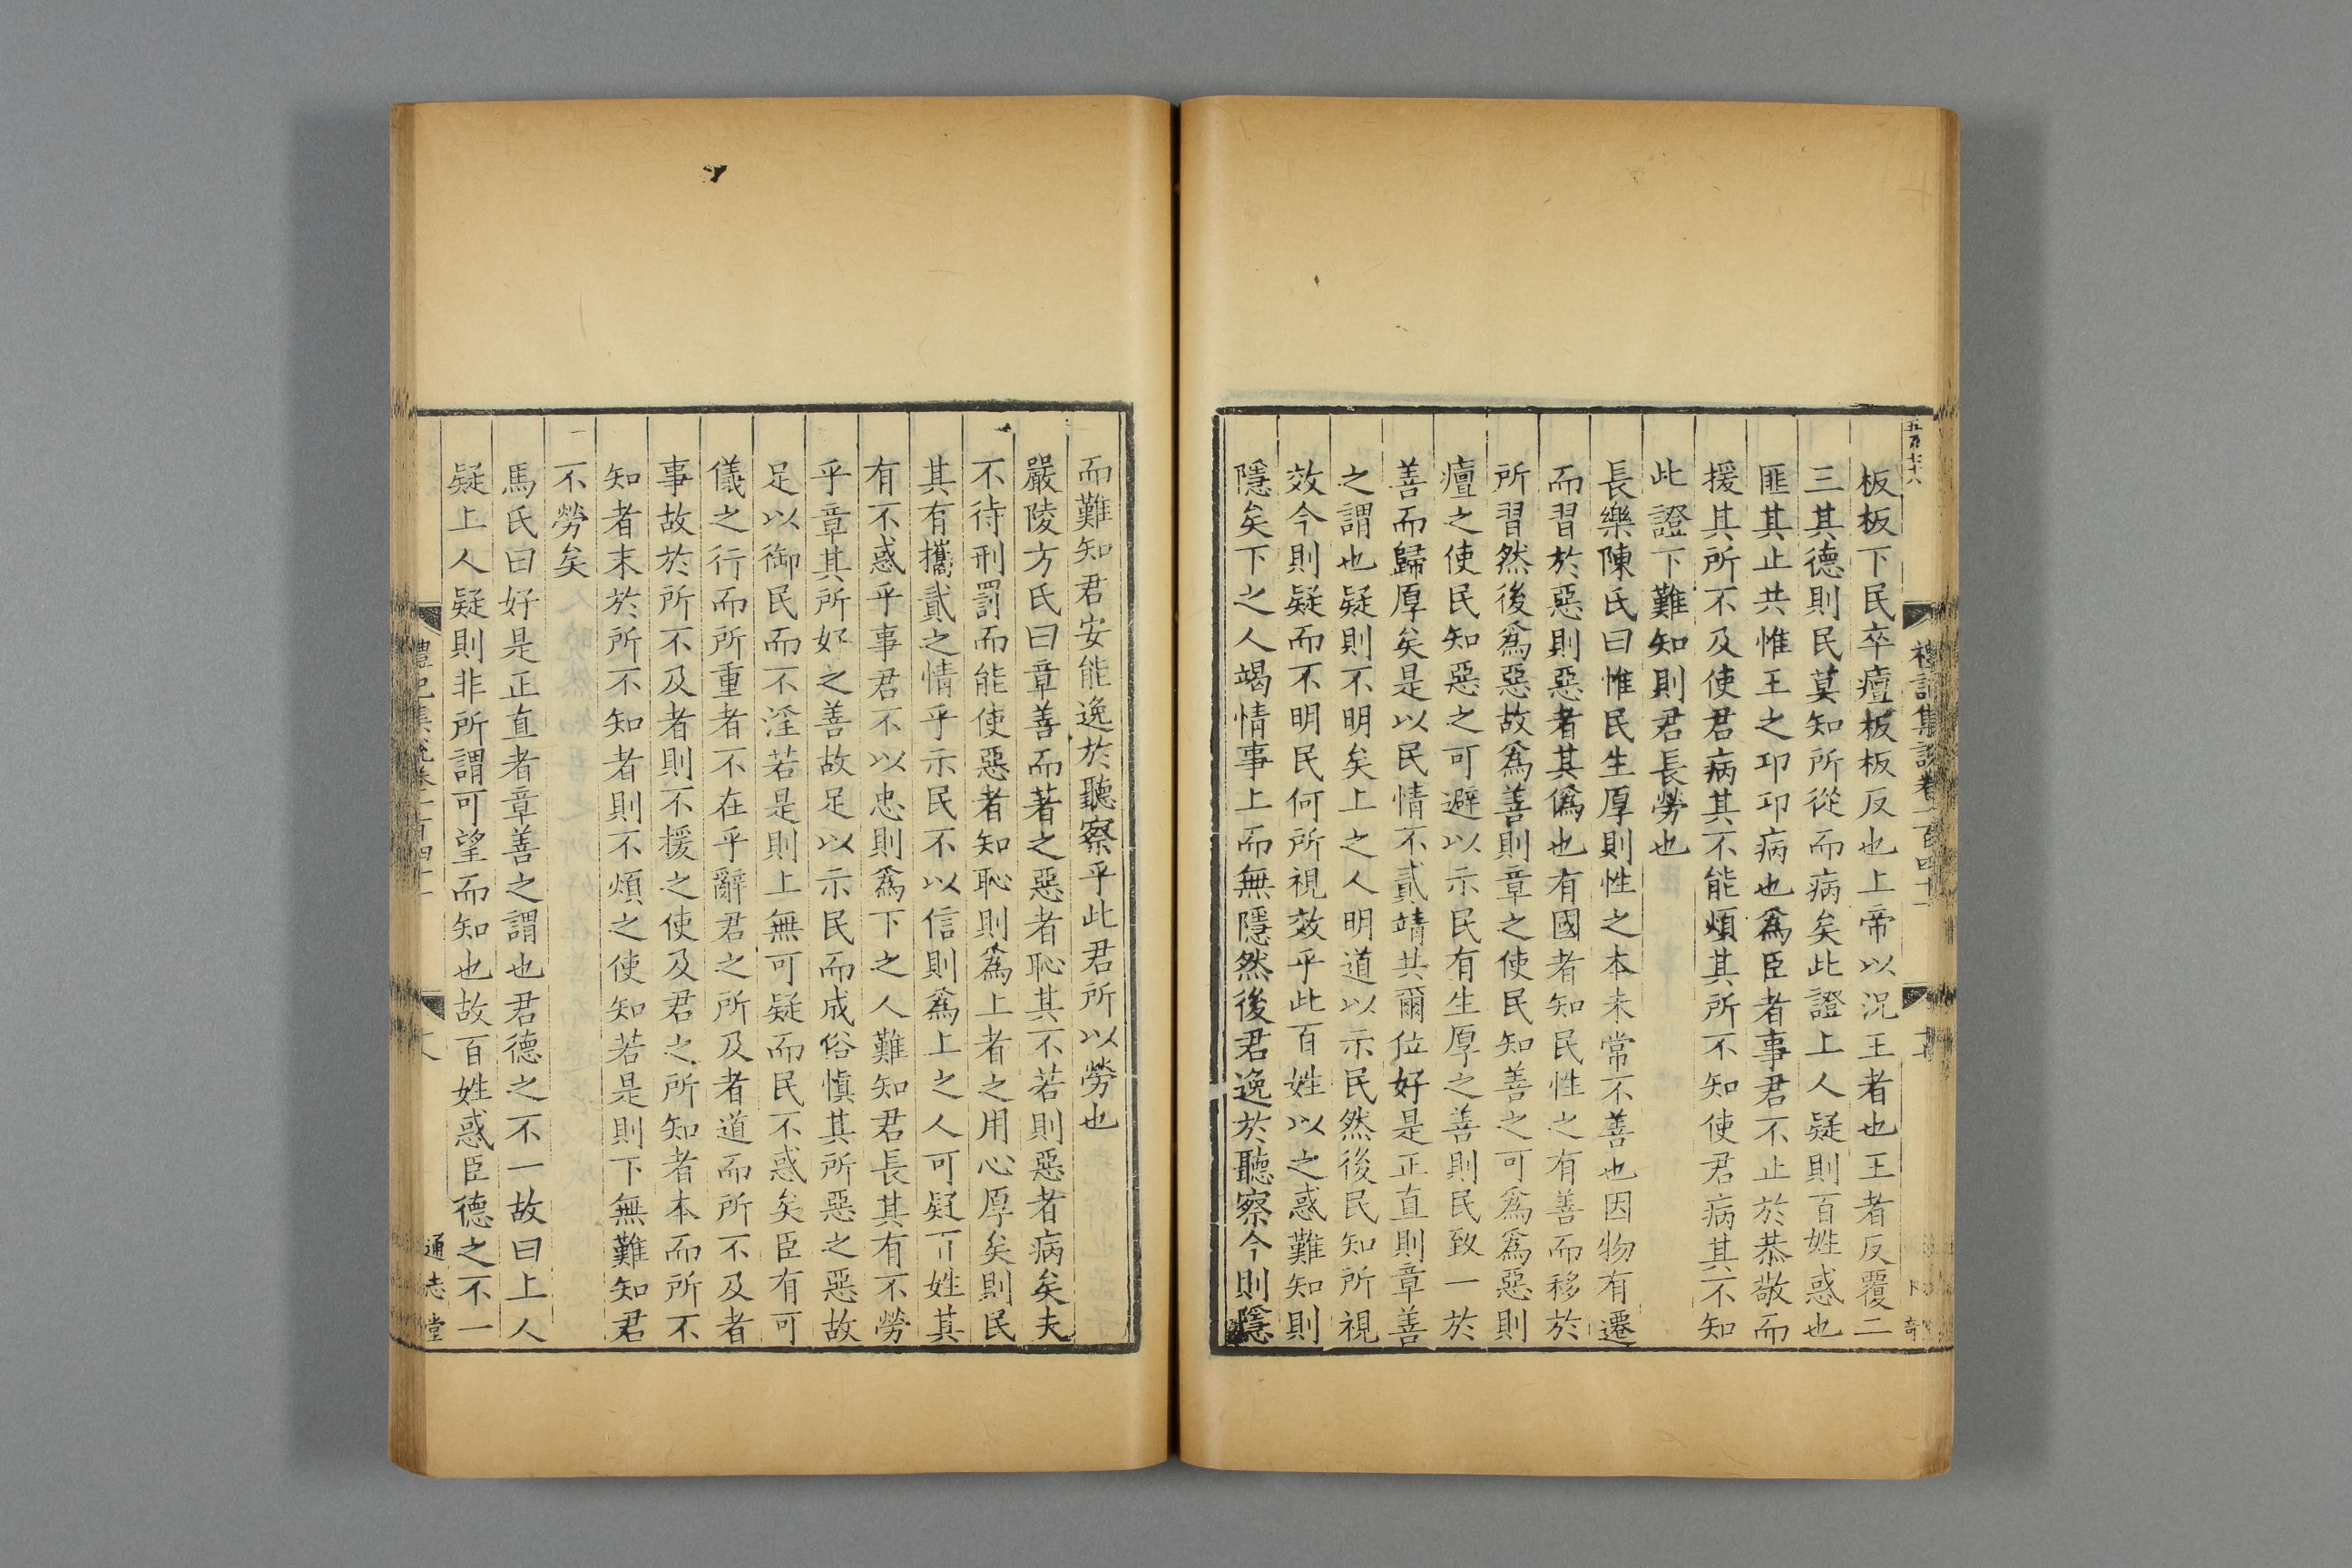 板板下民卒癉板板反也上帝以況王者也王者反覆二
三其德則民莫知所從而病矣此證上人疑則百姓惑也
匪其止共惟王之卭卭病也爲臣者事君不止於恭敬而
援其所不及使君病其不能煩其所不知使君病其不知
此證下難知則君長勞也
長樂陳氏曰惟民生厚則性之本未常不善也因物有遷
而習於惡則惡者其僞也有國者知民性之有善而移於
所習然後爲惡故爲善則章之使民知善之可爲爲惡則
癉之使民知惡之可避以示民有生厚之善則民致一於
善而歸厚矣是以民情不貳靖共爾位好是正直則章善
之謂也疑則不明矣上之人明道以示民然後民知所視
效今則疑而不明民何所視效乎此百姓以之惑難知則
隱矣下之人竭情事上而無隱然後君逸於聽察今則隱
而難知君安能逸於聽察乎此君所以勞也
嚴陵方氏曰章善而著之惡者恥其不若則惡者病矣夫
不待刑罰而能使惡者知恥則爲上者之用心厚矣則民
其有攜貳之情乎示民不以信則爲上之人可疑姓其
有不惑乎事君不以忠則爲下之人難知君長其有不勞
乎章其所好之善故足以示民而成俗愼其所惡之惡故
足以御民而不淫若是則上無可疑而民不惑矣臣有可
儀之行而所重者不在乎辭君之所及者道而所不及者
事故於所不及者則不援之使及君之所知者本而所不
知者末於所不知者則不煩之使知若是則下無難知君
不勞矣
馬氏曰好是正直者章善之謂也君德之不一故曰上人
疑上人疑則非所謂可望而知也故百姓惑臣德之不一
禮記集說卷一百四十一
通志堂